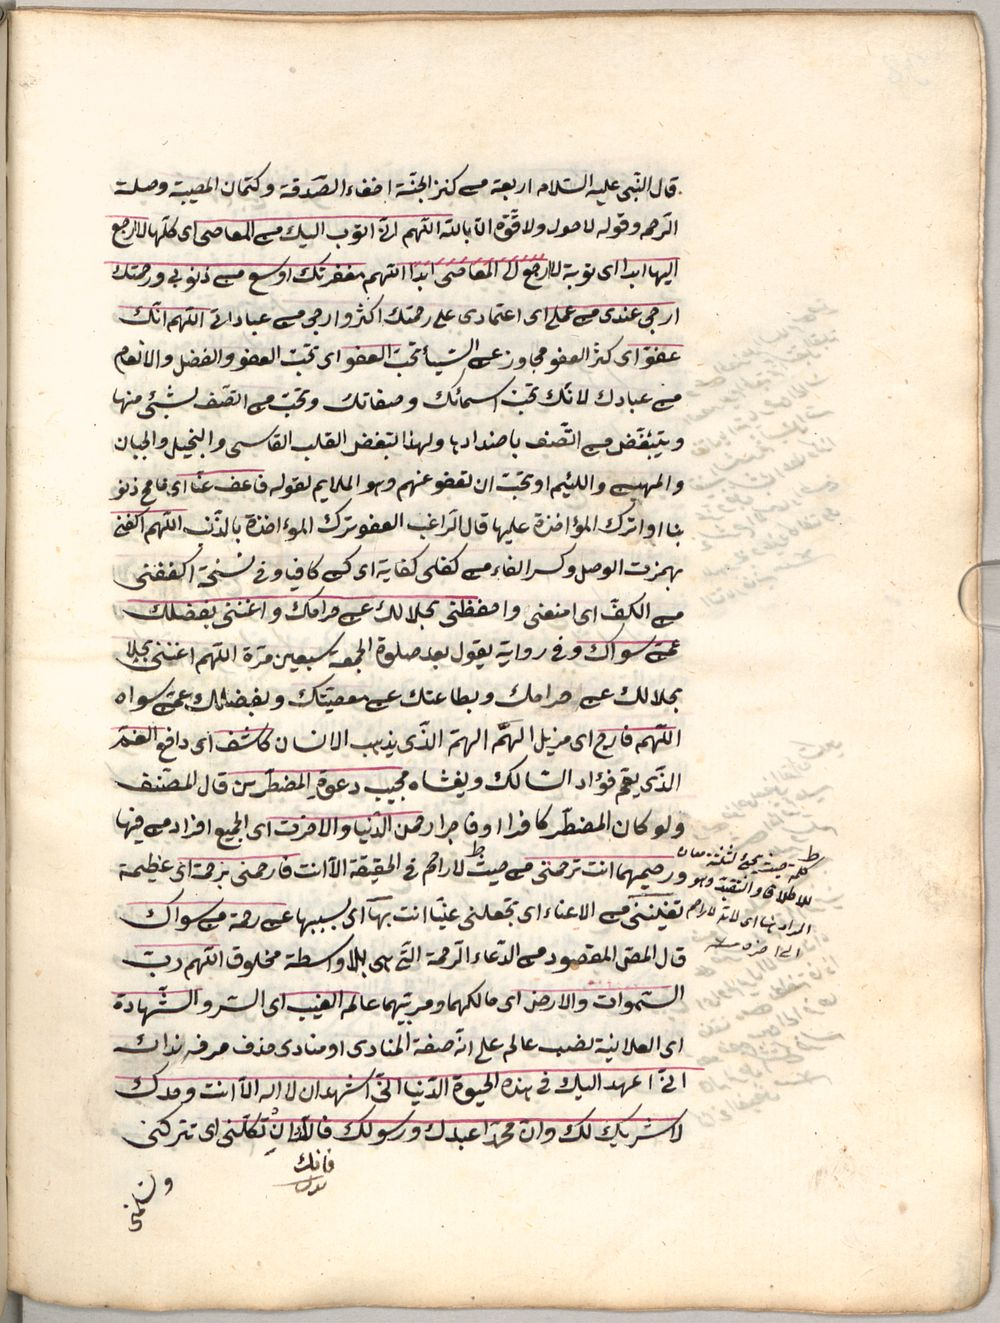 قال النّبى عليه السّلام اربعة من كنز الجنّة اخفاء الصّدقة وكتمان المصيبة وصلت
الرّحم وقوله لا حول ولا قوّة الّا بالله اللّهمّ انّى اتوب اليك من المعاصى اى كلّها لا ارجع
اليها ابدا اى توبة لا ارجع الى المعاصى ابدًا اللّهم مغفرتك اوسع من ذنوبى ورحمتك
ارجى عندى من عملى اى اعتمادى على رحمتك اكثر وارجى من عباداتى اللّهم انّك
عفوّ اى كثر العفو مجاوز عن السّيأ تحبّ العفو اى تحبّ العفو والفضل والانعام
من عبادك لانّك تحبّ اسمائك وصفاتك وتحبّ من اتّصف بشئ منها
ويتبغّض من اتّصف باضدادها ولهذا تبغض القلب القاسى والبخيل والجبان
والمهين واللئيم او تحبّ ان تعفو عنهم وهو الملايم لقوله فاعف عنّا اى فامح ذنو
بنا او اترك المؤاخذة عليها قال الرّاغب العفو ترك المؤاخذة بالذّنب اللّهم اكفنى
بهمزت الوصل وكسر الفاء من كفى كفاية اى كن كافيا وفى نسخة اكففنى
من الكفّ اى امنعنى واحفظنى بحلالك عن حرامك واغننى بفضلك
عمّن سواك وفى رواية يقول بعد صلوة الجمعه سبعين مرّة اللّهم اغننى بحلا
بحلالك عن حرامك وبطاعتك عن معصيتك وبفضلك عمّن سواه
اللّهم فارج اى مزيل الهمّ الهمّ الذّى يذهب الانسان كاشف اى دافع الغمّ
الذّى يغم فؤاد السّالك ويغشاه مجيب دعوة المضطرّين قال المصنّف
ولو كان المضطرّ كافرا او فاجرا رحمن الدّنيا والاخرت اى الجميع افراد من فيها
ورحيمهما انت ترحمنى من حيث لا راحم فى الحقيقة الّا انت فارحمنى برحمة اى عظيمة
تغنينى من الاغناء اى تجعلنى غنيّا انت بها اى بسببها عن رحمة من سواك
قال المص المقصود من الدّعاء الرّحمة التّى هى بلا واسطة مخلوق اللّهم ربّ
السّموات والارض اى مالكهما ومربّيهما عالم الغيب اى السّر والشّهادة
اى العلانية بنصب عالم على انّه صفة المنادى او منادى حذف حرف نداك
انّى اعهد اليك فى هذه الحيوة الدّنيا انّى اشهد ان لا اله الّا انت وحدك
لا شريك لك وانّ محمّدا عبدك ورسولك فلا ان تكلنى اى تتركنى
فانك
كلمة حيث يجئ لثلثة معان
للاطلاق والتقييد وهو
المراد هنا اى لانّه لا راحم